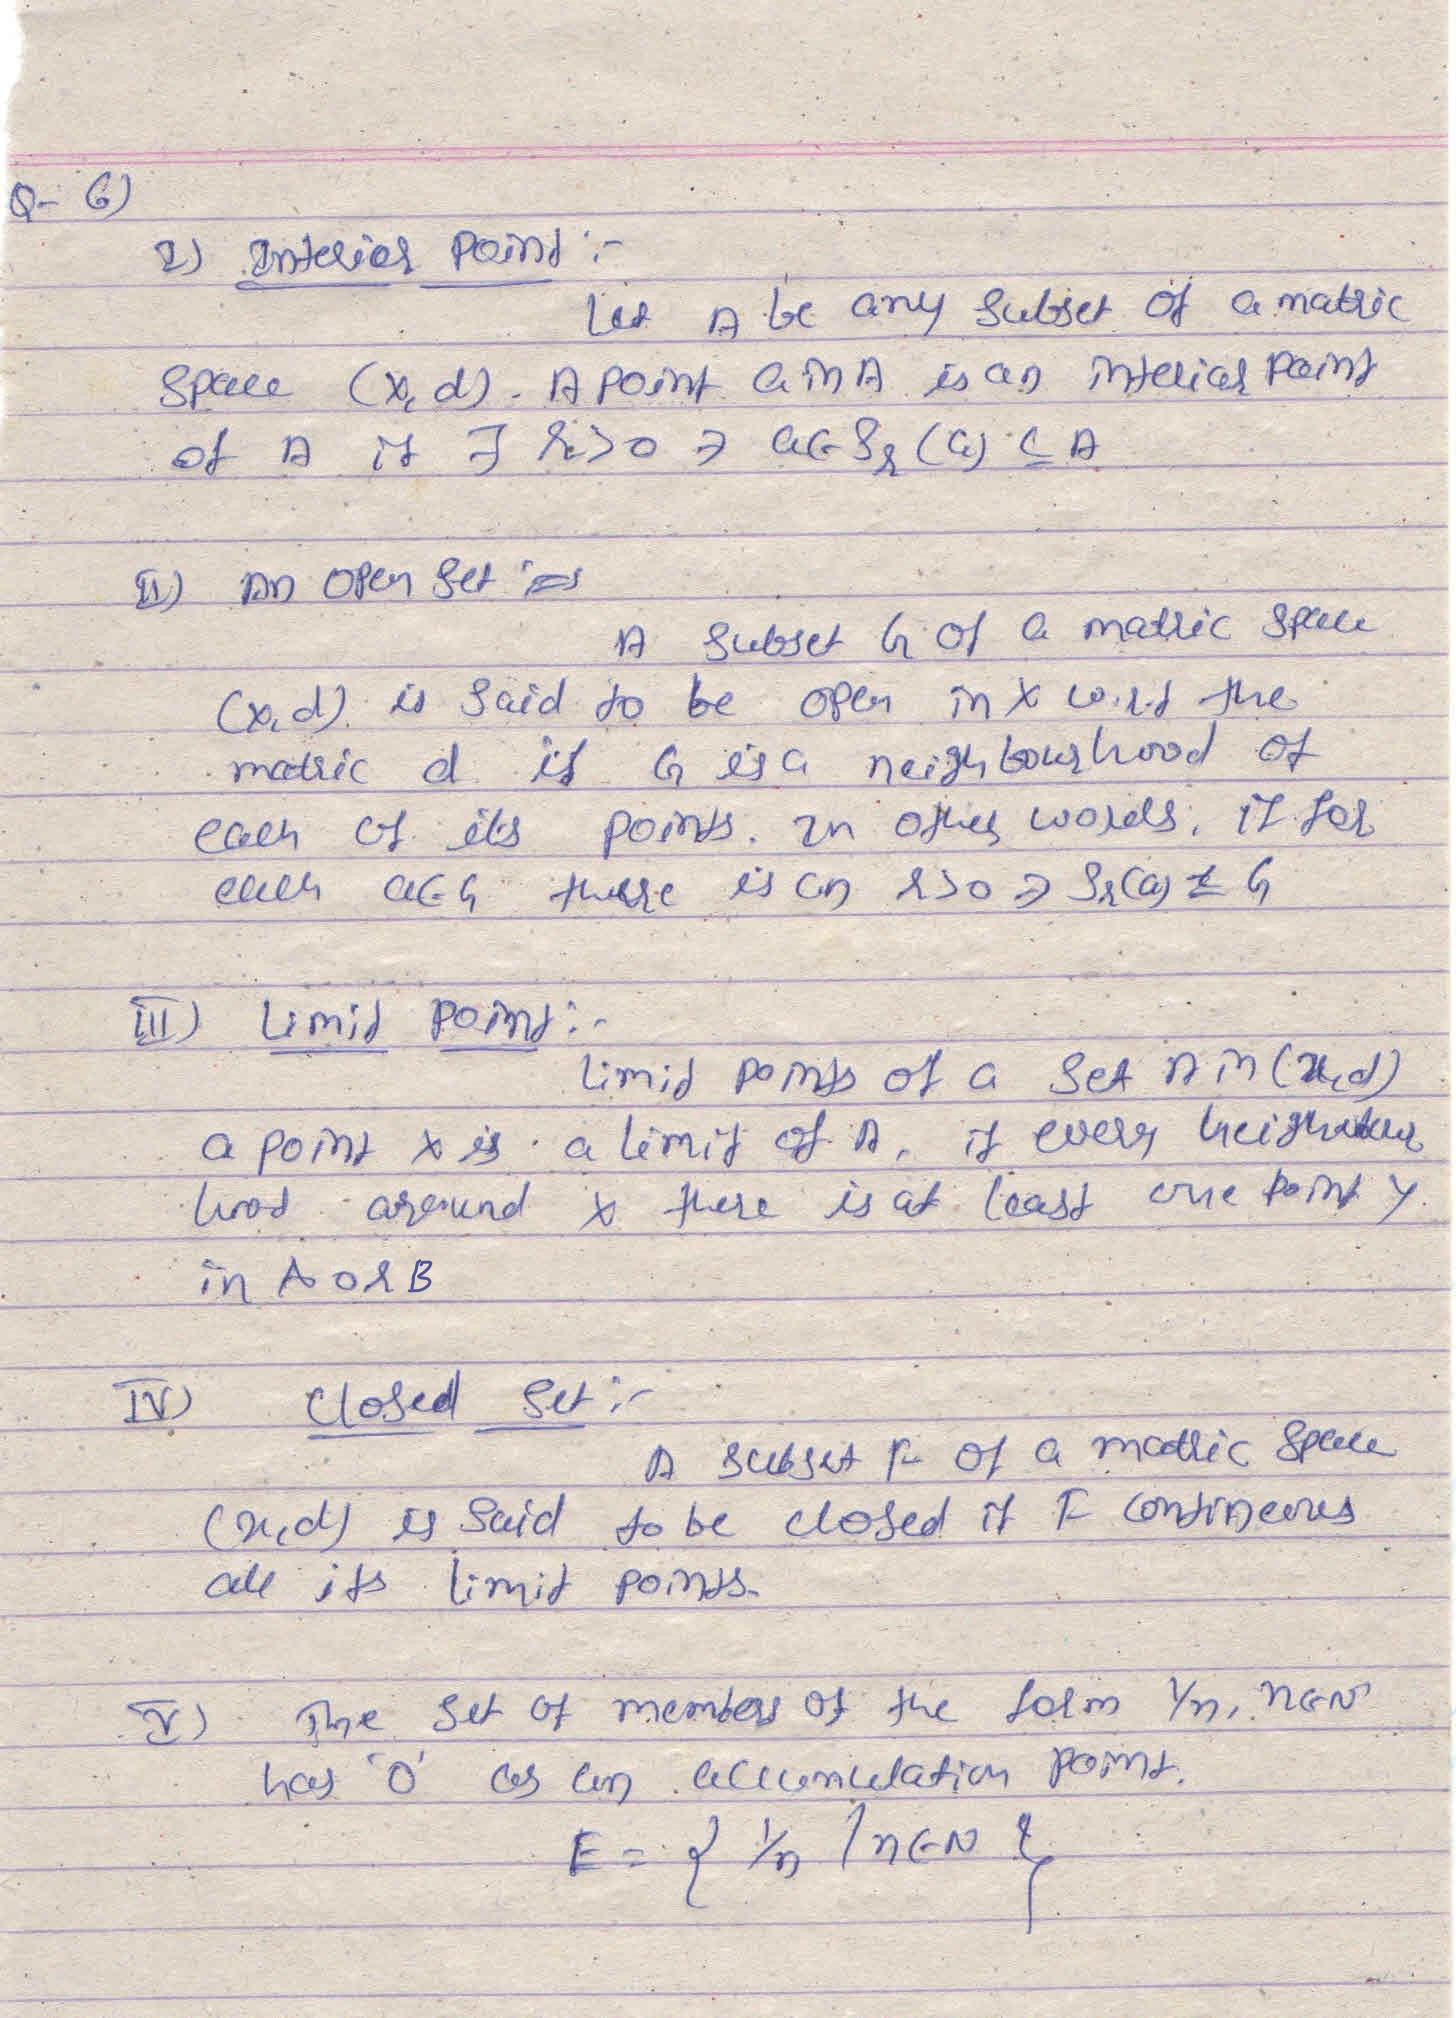 Q- 6)
I) Interior Point :-
Let A be any subset of a matric
space (x, d). A point a in A is an interior point
of A if ∃ r>0 ∋ a∈Sr(a) ⊆ A
II) An open set :=
A subset G of a matric space
(x, d) is said to be open in x w.r.t the
matric d if G is a neighbourhood of
each of its points. In other words, if for
each a∈G there is an r>0 ∋ Sr(a) ⊆ G
III) Limit Point :-
Limit points of a set A in (x, d)
a point x is a limit of A, if every neighbour
hood around x there is at least one point y
in A or B
IV) Closed Set :-
A subset F of a matric space
(x, d) is said to be closed if F contineous
all its limit points.
V) The set of members of the form 1/n, n∈N
has '0' as an accumulation point.
E = { 1/n / n∈N }